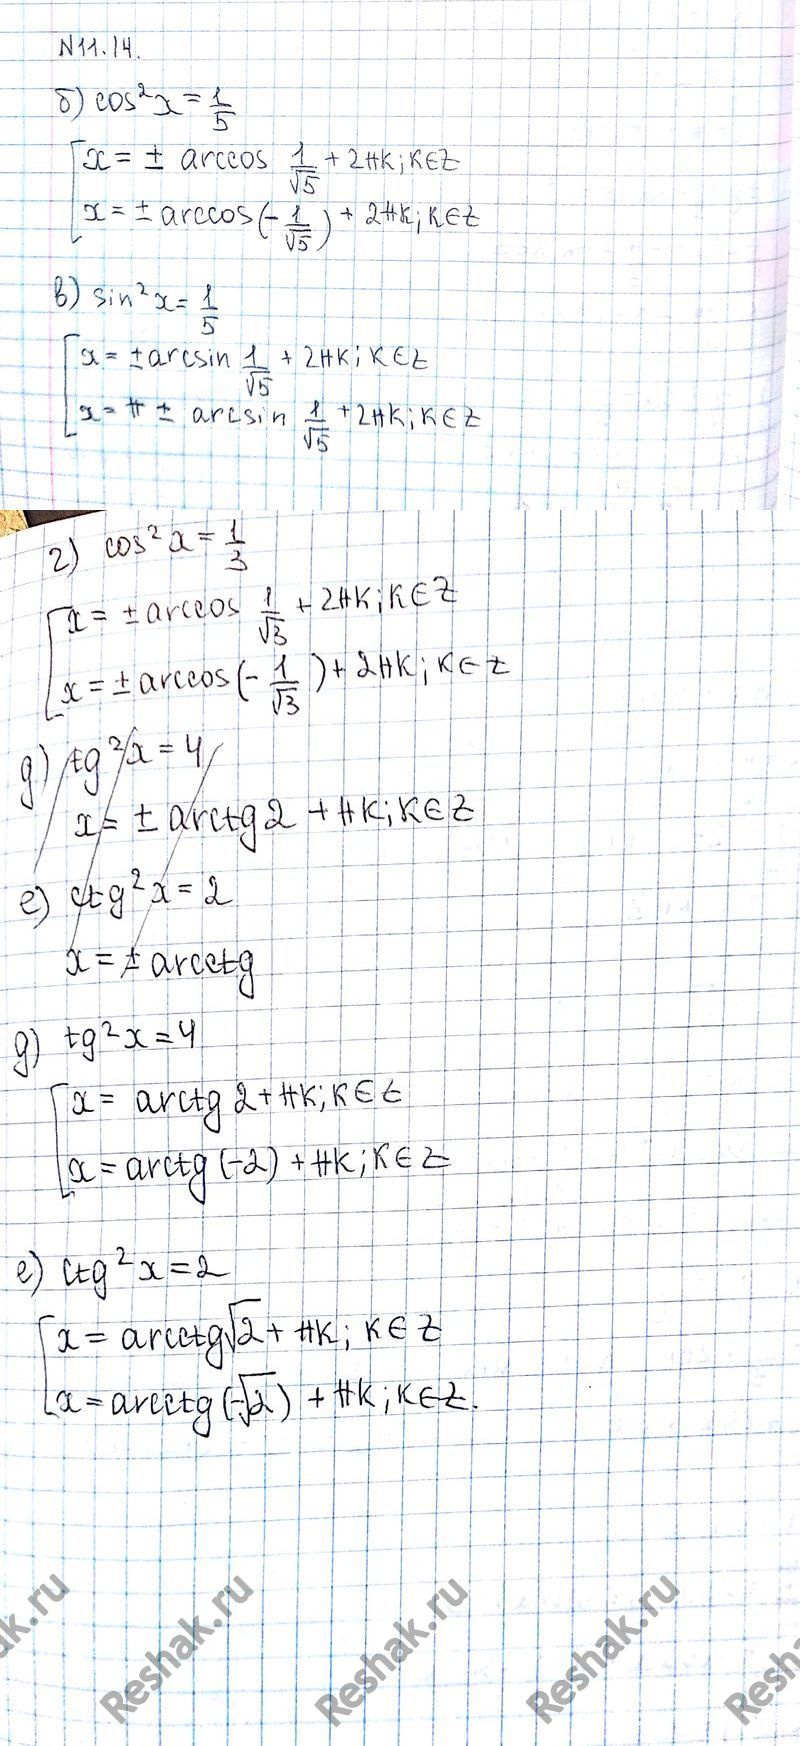 N11.14.
б) cos²x = 1/5
x = ± arccos 1/√5 + 2πk; k∈Z
x = ± arccos(-1/√5) + 2πk; k∈Z
в) sin²x = 1/5
x = ± arcsin 1/√5 + 2πk; k∈Z
x = π ± arcsin 1/√5 + 2πk; k∈Z
г) cos²x = 1/3
x = ± arccos 1/√3 + 2πk; k∈Z
x = ± arccos(-1/√3) + 2πk; k∈Z
д) tg²x = 4
x = ± arctg 2 + πk; k∈Z
е) ctg²x = 2
x = ± arcctg
д) tg²x = 4
x = arctg 2 + πk; k∈Z
x = arctg (-2) + πk; k∈Z
е) ctg²x = 2
x = arcctg √2 + πk; k∈Z
x = arcctg (-√2) + πk; k∈Z.
Reshak.ru Reshak.ru Reshak.ru